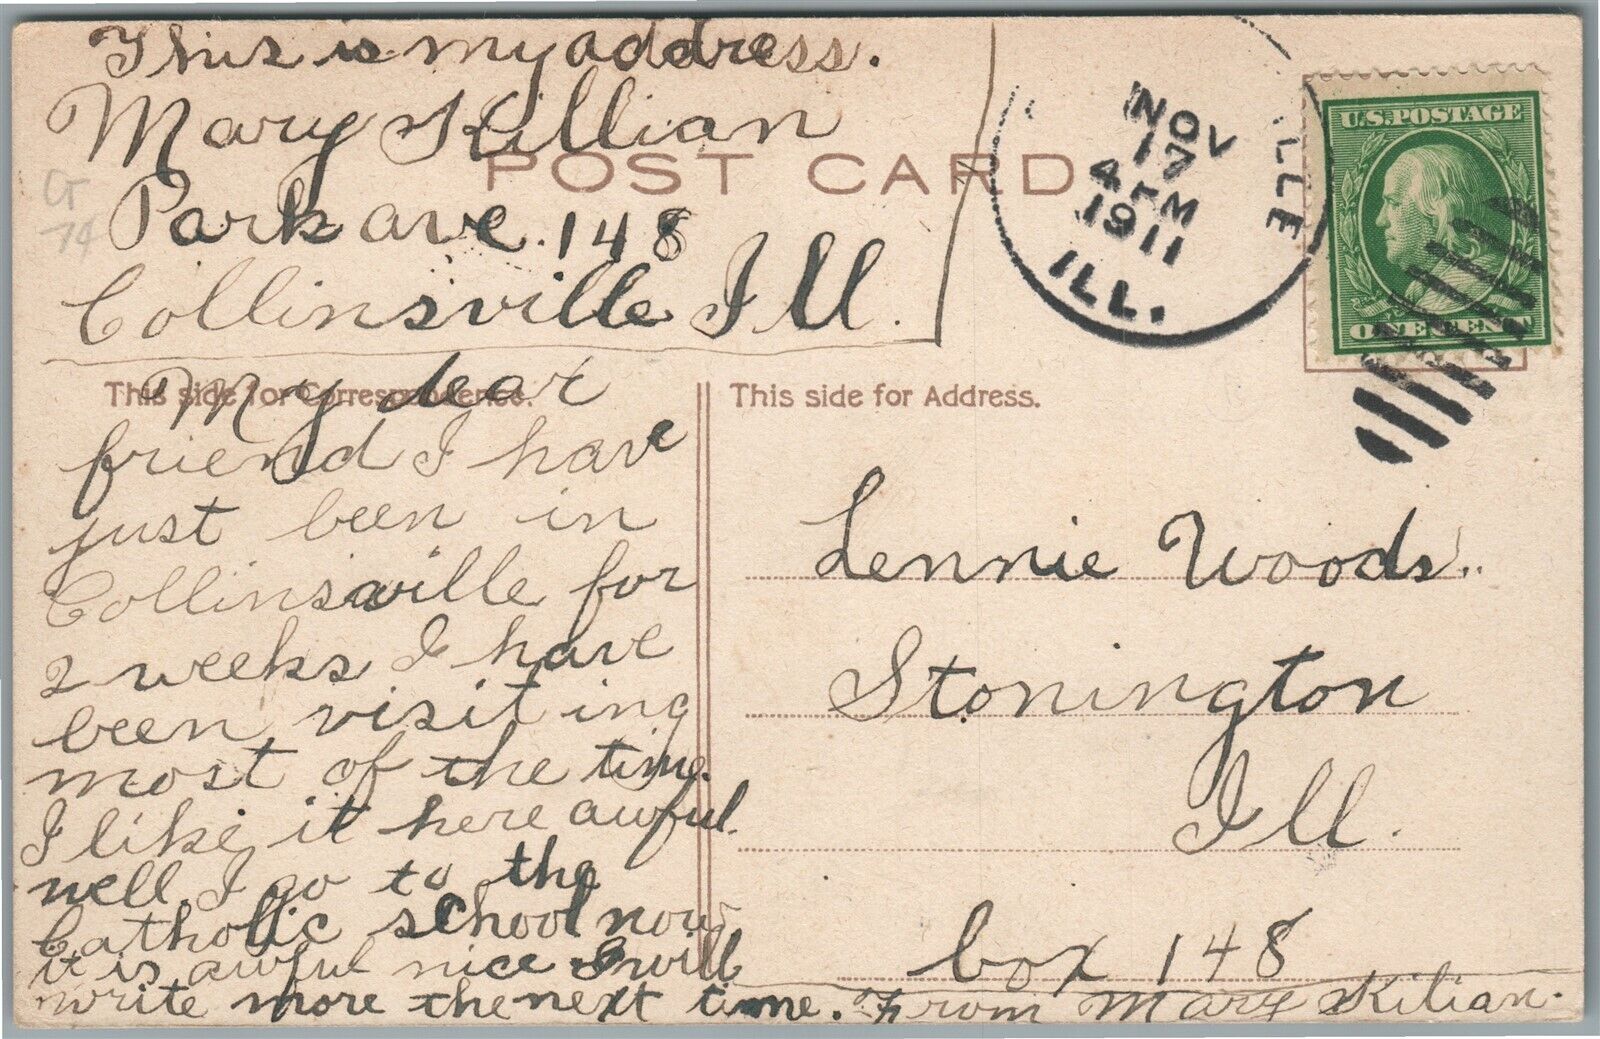 This is my address.
Mary Killian
Park ave. 148
Collinsville Ill.
POST CARD
NOV
17
4 PM
1911
ILLE
ILL.
U.S. POSTAGE
ONE CENT
This side for Correspondence.
This side for Address.
My dear
friend I have
just been in
Collinsville for
2 weeks I have
been visiting
most of the time.
I like it here awful
well. I go to the
Catholic school now
it is awful nice I will
write more the next time. From Mary Kilian.
Lennie Woods.
Stonington
Ill.
box 148